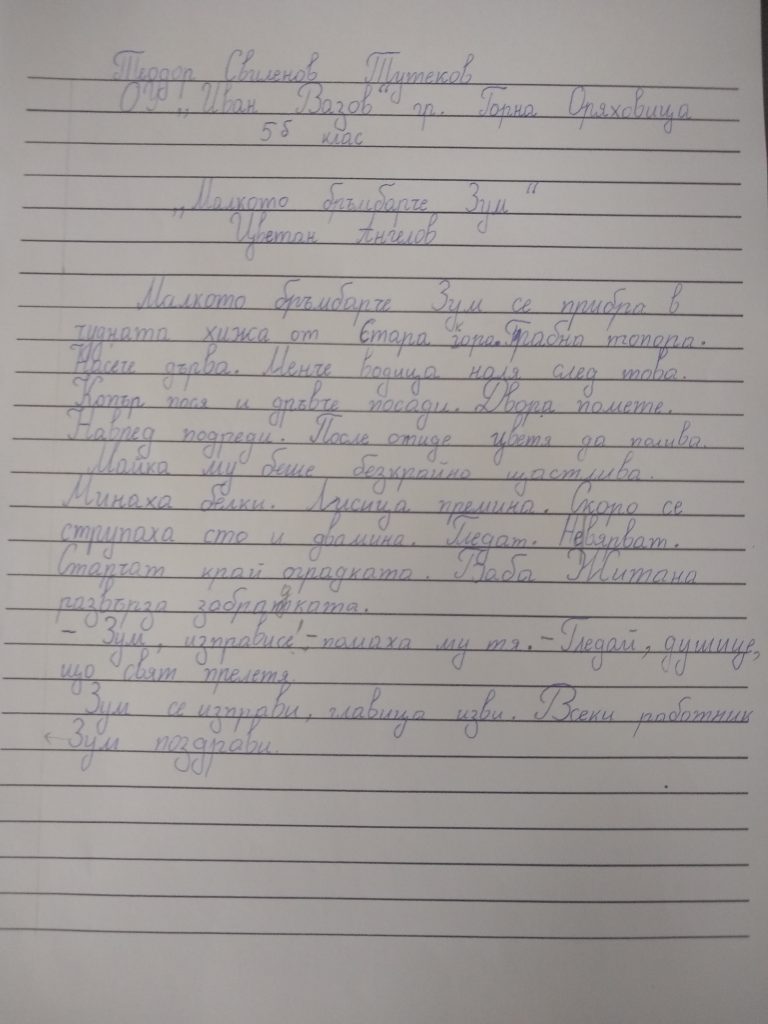 Теодор Свиленов Тутеков
ОУ „Иван Вазов" гр. Горна Оряховица
5б клас
„Малкото бръмбарче Зум“
Цветан Ангелов
Малкото бръмбарче Зум се прибра в
чудната хижа от Стара гора. Грабна топора.
Насече дърва. Менче водица наля след това.
Копър пося и дръвче посади. Двора помете.
Навред подреди. После отиде цветя да полива.
Майка му беше безкрайно щастлива.
Минаха белки. Лисица премина. Скоро се
струпаха сто и двамина. Гледат. Невярват.
Стърчат край оградката. Баба Житана
развърза забрадката.
- Зум, изправисе! - помаха му тя. - Гледай, душице,
що свят прелетя.
Зум се изправи, главица изви. Всеки работник
Зум поздрави.